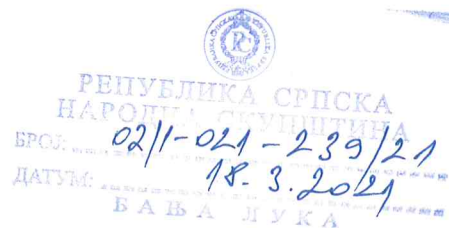 РЕПУБЛИКА СРПСКА
НАРОДНА СКУПШТИНА
БРОЈ: 02/1-021-239/21
ДАТУМ: 18.3.2021
БАЊА ЛУКА